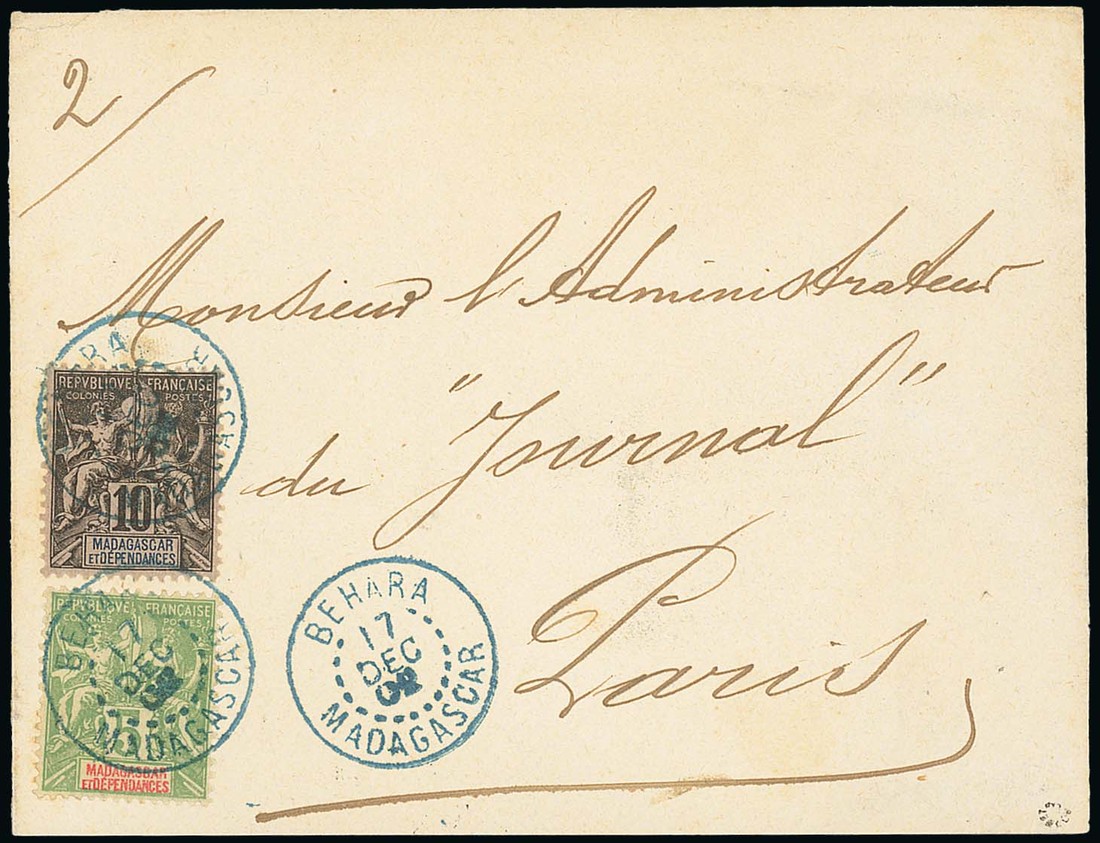 2/
Monsieur l'Administrateur
du "Journal"
Paris
REPVBLIQVE FRANÇAISE
COLONIES POSTES
10
MADAGASCAR
ET DÉPENDANCES
REPVBLIQVE FRANÇAISE
POSTES
5
MADAGASCAR
ET DÉPENDANCES
BEHARA
17
DEC
02
MADAGASCAR
17
DEC
MADAGASCAR